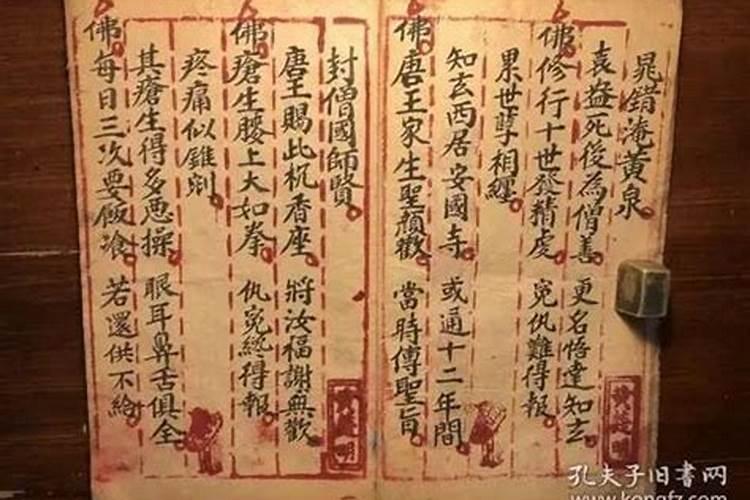 晁錯淹黃泉
袁益死後為僧善 更名悟達知玄
佛修行十世發精虔 冤仇難得報
累世孽相纏
知玄西居安國寺 或通十二年間
佛唐王家生聖顏歡 當時傳聖旨
封僧國師賢
唐王賜此机香座 將汝福謝無歡
佛瘡生腰上大如拳 仇冤終得報
疼痛似錐剜
其瘡生得多恶操 眼耳鼻舌俱全
佛每日三次要飯飡 若還供不給
孔夫子旧书网